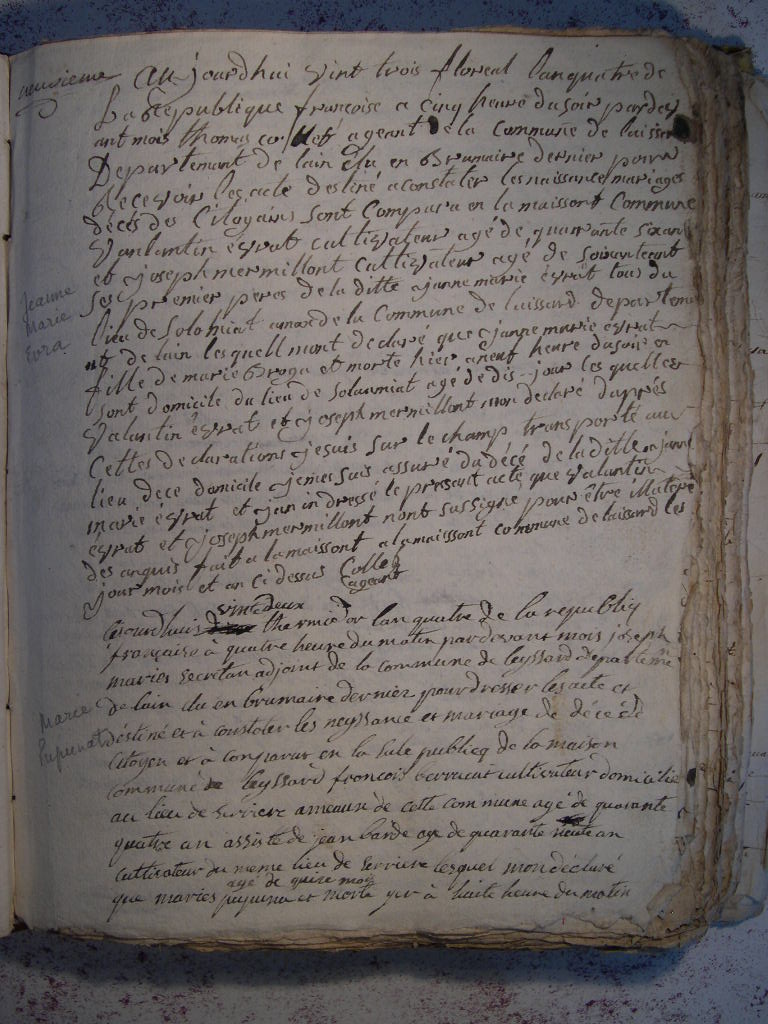 neuvieme
aujourdhui vint trois floreal lanquatre de
La Republique francoise a cinq heure dusoir pardev
ant mois thomas collet ageant de la Commune de laissar
Departemant de lain Elu en Brumaire dernier pour
Recevoir les acte destiné a constater les naissance mariages
décés des Citoyains sont Compara en la maissont Commune
Vanlantin évrat cultivateur agé de quarante sixans
et joseph mermillont cultivateur agé de soixanteant
premier peres de la ditte janne marie évrat tous du
lieu de Solomiat amox de la Commune de laissard departem
nt de lain lesquell mont declaré que janne marie évrat
fille de marié Broga et morte hier aneuf heure dusoir en
sont domicile du lieu de Solaumiat agé de dis jour les quelles
Valantin évrat et joseph mermillont mon declaré daprés
Cettes declarations jesuis sur le champ transporté au
lieu dece domicile jemes suis assuré du décé de laditte janne
marié évrat et jan in dressé le present acte que valantin
évrat et joseph mermillont nont sussigné pour être illateré
des anquis fait a lamaissont a lamaissont commune de laissard les
jour mois et an ci dessus Collet
ageant
Jeanne
Marie
Evra
vint deux
cejourdhuis thermidor lan quatre de la republiq
française à quatre heure du matin pardevant mois joseph
maries secretan adjoint de la commune de leyssard departeme
de lain élu en brumaire dernier pour dresser les acte et
déstiné et à constater les neyssance et mariage de décé dé
Citoyen et à conparut en la sale publicq de la maison
communé de leyssard francois berruciat cultivateur domicilié
au lieu de serriere ameaux de cette commune agé de quarante
quatre an assisté de jean barde age de quarante neuf an
cultivateur du meme lieu de serriere lesquel mon déclaré
agé de quize mois
que maries pupuna et morte yer à huite heure du matin
Marie
Pupunat